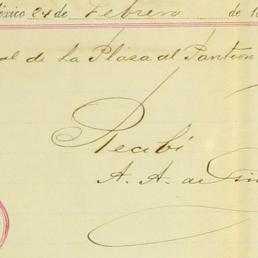 México 24 de Febrero de 1
al de la Plaza al Panteon
Recibí
A. A. de